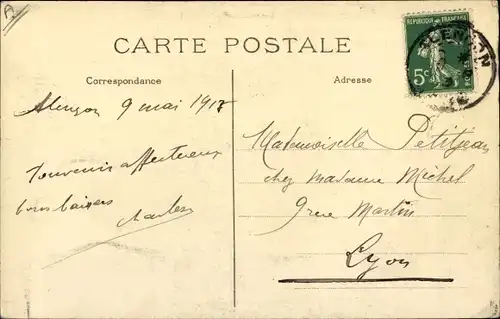 CARTE POSTALE
Correspondance
Adresse
REPUBLIQUE FRANÇAISE
5c
ALENÇON
Alençon 9 mai 1917
Souvenir affectueux
bons baisers
Charles
Mademoiselle Petitjean
chez Madame Michel
9 rue Martin
Lyon